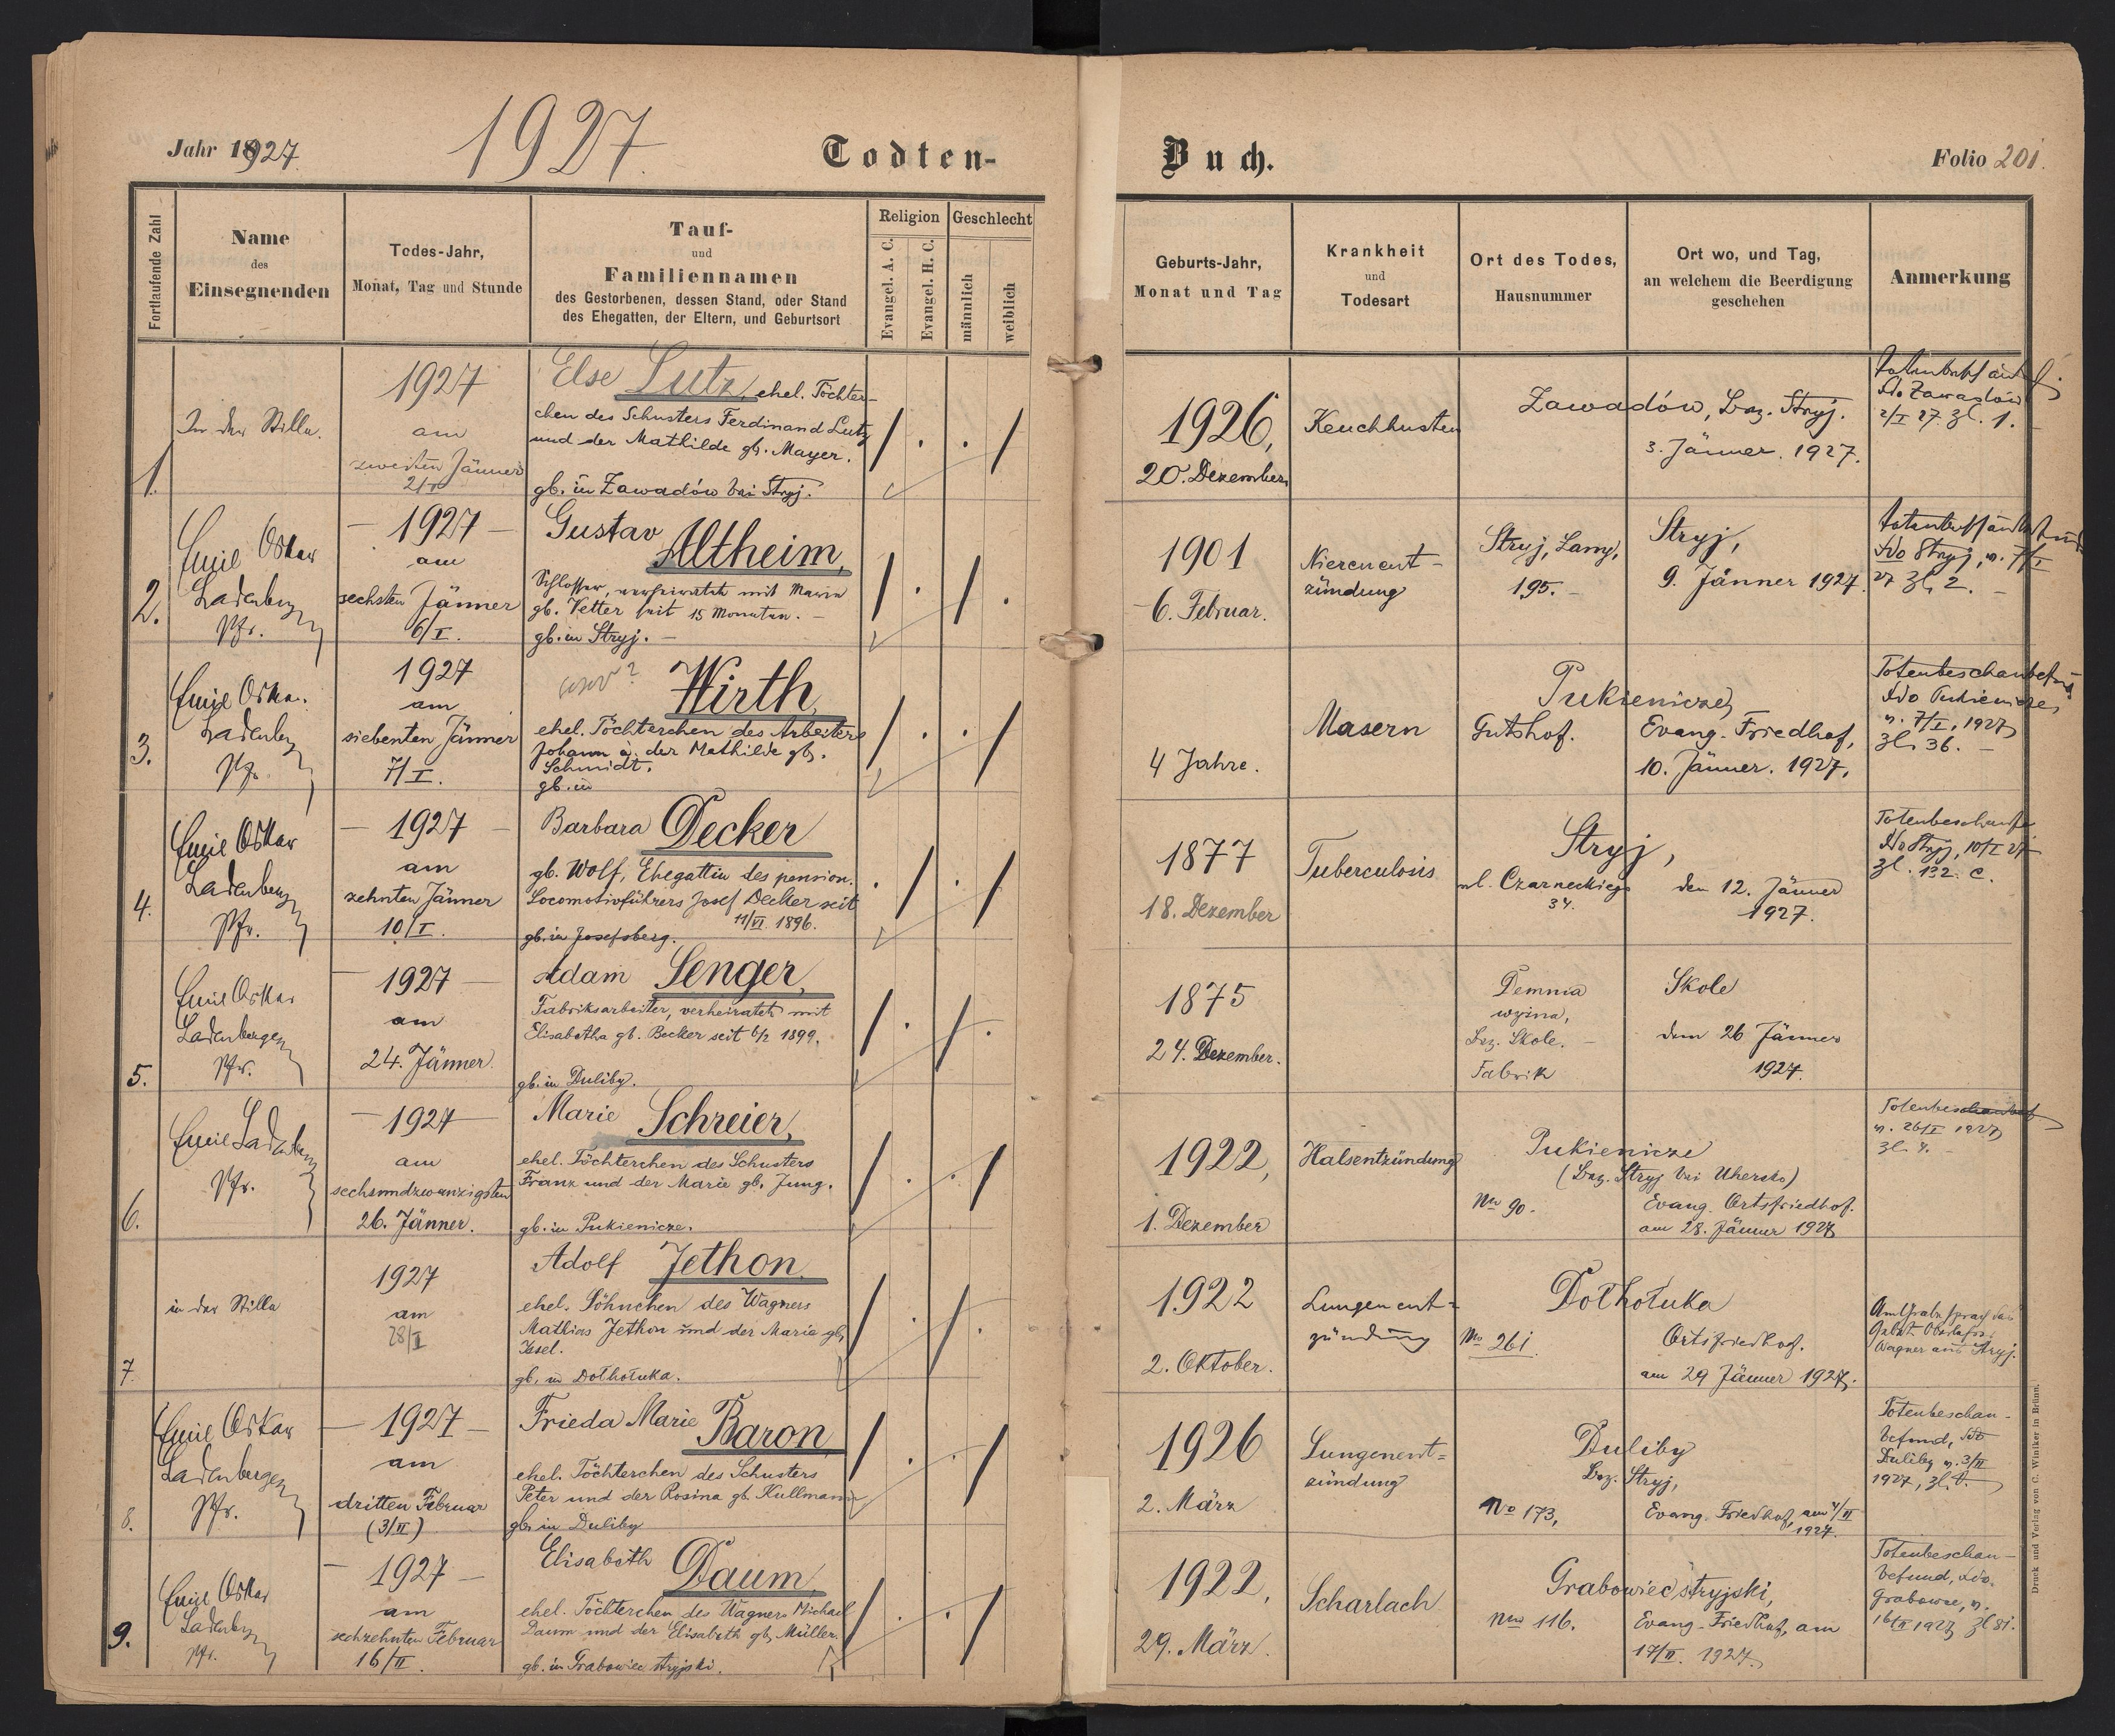 Jahr 1927.
1927.
Todten-
Buch.
Folio 201.
Fortlaufende Zahl
Name
des
Einsegnenden
Todes-Jahr,
Monat, Tag und Stunde
Tauf-
und
Familiennamen
des Gestorbenen, dessen Stand, oder Stand
des Ehegatten, der Eltern, und Geburtsort
Religion
Evangel. A. C.
Evangel. H. C.
Geschlecht
männlich
weiblich
Geburts-Jahr,
Monat und Tag
Krankheit
und
Todesart
Ort des Todes,
Hausnummer
Ort wo, und Tag,
an welchem die Beerdigung
geschehen
Anmerkung
1.
In der Stille.
1927
am
zweiten Jänner
2/I
Else Lutz, ehel. Töchter-
chen des Schusters Ferdinand Lutz
und der Mathilde gb. Mayer.
gb. in Zawadów bei Stryj.
1926,
20. Dezember
Keuchhusten
Zawadów, Bez. Stryj.
3. Jänner. 1927.
Zawadów
2/I 27. Zl. 1.
2.
Emil Oskar
Ladenberger
Pfr.
1927
am
sechsten Jänner
6/I.
Gustav
Altheim,
Schlosser, verheiratet mit Maria
gb. Vetter seit 15 Monaten.
gb. in Stryj.
1901
6. Februar.
Nierenent-
zündung
Stryj, Lany,
195.
Stryj,
9. Jänner 1927.
Stryj, v. 7/I
27 Zl. 2.
3.
Emil Oskar
Ladenberger
Pfr.
1927
am
siebenten Jänner
7/I.
Wirth,
ehel. Töchterchen des Arbeiters
Johann u. der Mathilde gb.
Schmidt.
gb. in
4 Jahre.
Masern
Pukienicze,
Gutshof.
Evang. Friedhof,
10. Jänner. 1927.
Totenbeschaubefund
Pukienicze,
v. 7/I. 1927,
Zl. 36.
4.
Emil Oskar
Ladenberger
Pfr.
1927
am
zehnten Jänner
10/I.
Barbara Decker
gb. Wolf, Ehegattin des pension.
Locomotivführers Josef Decker seit
11/VI. 1896.
gb. in Josefsberg.
1877
18. Dezember
Tuberculosis
Stryj,
ul. Czarneckiego
34.
den 12. Jänner
1927.
Stryj, 10/I 27
Zl. 132. C.
5.
Emil Oskar
Ladenberger
Pfr.
1927
am
24. Jänner.
Adam Senger,
Fabriksarbeiter, verheiratet mit
Elisabetha gb. Becker seit 6/2 1899.
gb. in Duliby.
1875
24. Dezember.
Demnia
wyżna,
Bez. Skole.
Fabrik
Skole
den 26 Jänner
1927.
6.
Emil Ladenberger
Pfr.
1927
am
sechsundzwanzigsten
26. Jänner.
Marie Schreier,
ehel. Töchterchen des Schusters
Franz und der Marie gb. Jung.
gb. in Pukienicze.
1922,
1. Dezember
Halsentzündung
Pukienicze
(Bez. Stryj bei Uhersko)
No 90.
Evang. Ortsfriedhof.
am 28. Jänner 1927
v. 26/I 1927,
Zl. 4.
7.
in der Stille
1927
am
28/I
Adolf Jethon
ehel. Söhnchen des Wagners
Mathias Jethon und der Marie gb.
gb. in Dołhołuka.
1922
2. Oktober.
Lungenent-
zündung
Dołhołuka
No 261.
Ortsfriedhof.
am 29 Jänner 1927.
Am Grabe sprach das
Gebet
Wagner aus Stryj.
8.
Emil Oskar
Ladenberger
Pfr.
1927
am
dritten Februar
(3/II)
Frieda Marie Baron,
ehel. Töchterchen des Schusters
Peter und der Rosina gb. Kullmann
gb. in Duliby
1926
2. März
Lungenent-
zündung
Duliby
Bez. Stryj,
No 173,
Evang. Friedhof, am 4/II
1927.
Totenbeschau-
befund,
Duliby v. 3/II
1927, Zl.
9.
Emil Oskar
Ladenberger
Pfr.
1927
am
sechzehnten Februar
16/II.
Elisabeth Daum,
ehel. Töchterchen des Wagners Michael
Daum und der Elisabeth gb. Müller.
gb. in Grabowiec stryjski.
1922,
29. März.
Scharlach
Grabowiec stryjski,
No 116.
Evang. Friedhof, am
17/II. 1927.
Totenbeschau-
befund,
Grabowiec, v.
16/II 1927, Zl 81.
Druck und Verlag von C. Winiker in Brünn.